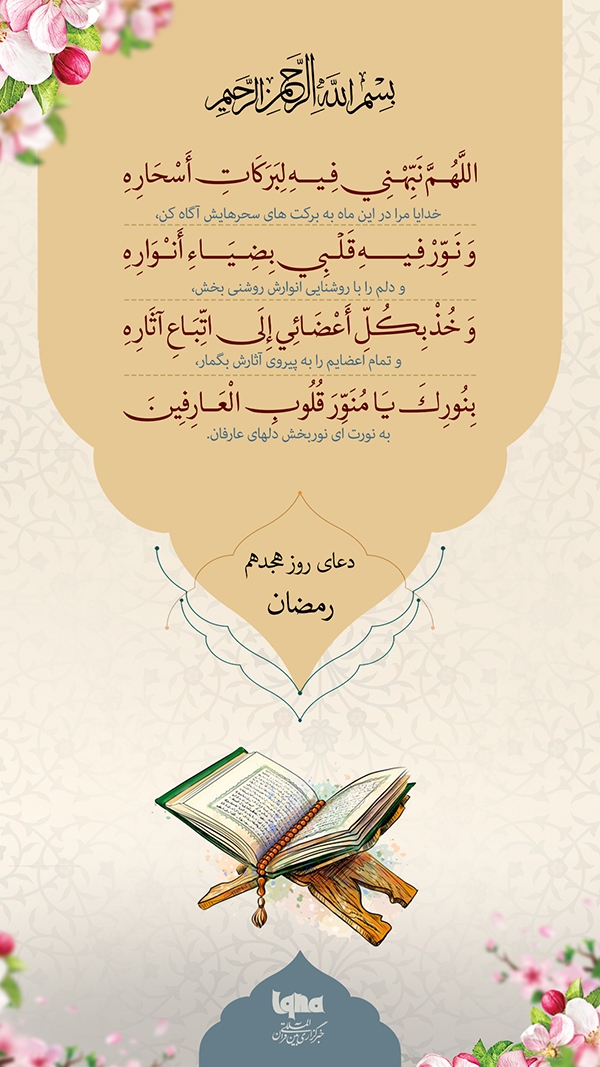 بِسْمِ اللَّهِ الرَّحْمَنِ الرَّحِيمِ
اللَّهُمَّ نَبِّهْنِي فِيهِ لِبَرَكَاتِ أَسْحَارِهِ
خدایا مرا در این ماه به برکت های سحرهایش آگاه کن،
وَ نَوِّرْ فِيهِ قَلْبِي بِضِيَاءِ أَنْوَارِهِ
و دلم را با روشنایی انوارش روشنی بخش،
وَ خُذْ بِكُلِّ أَعْضَائِي إِلَى اتِّبَاعِ آثَارِهِ
و تمام اعضایم را به پیروی آثارش بگمار،
بِنُورِكَ يَا مُنَوِّرَ قُلُوبِ الْعَارِفِينَ
به نورت ای نوربخش دلهای عارفان.
دعای روز هجدهم
رمضان
iqna
خبرگزاری بین المللی قرآن